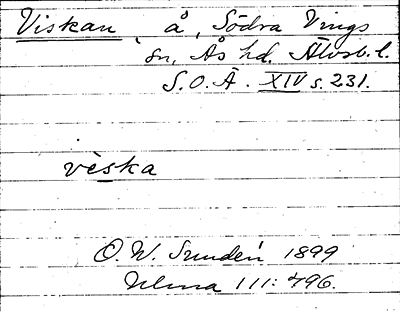 Viskan, å, Södra Vings
sn, Ås hd. Älvsb. l.
S.O.Ä. XIV s. 231.
vèska
O. W. Sundén 1899
Ulma 111:496.